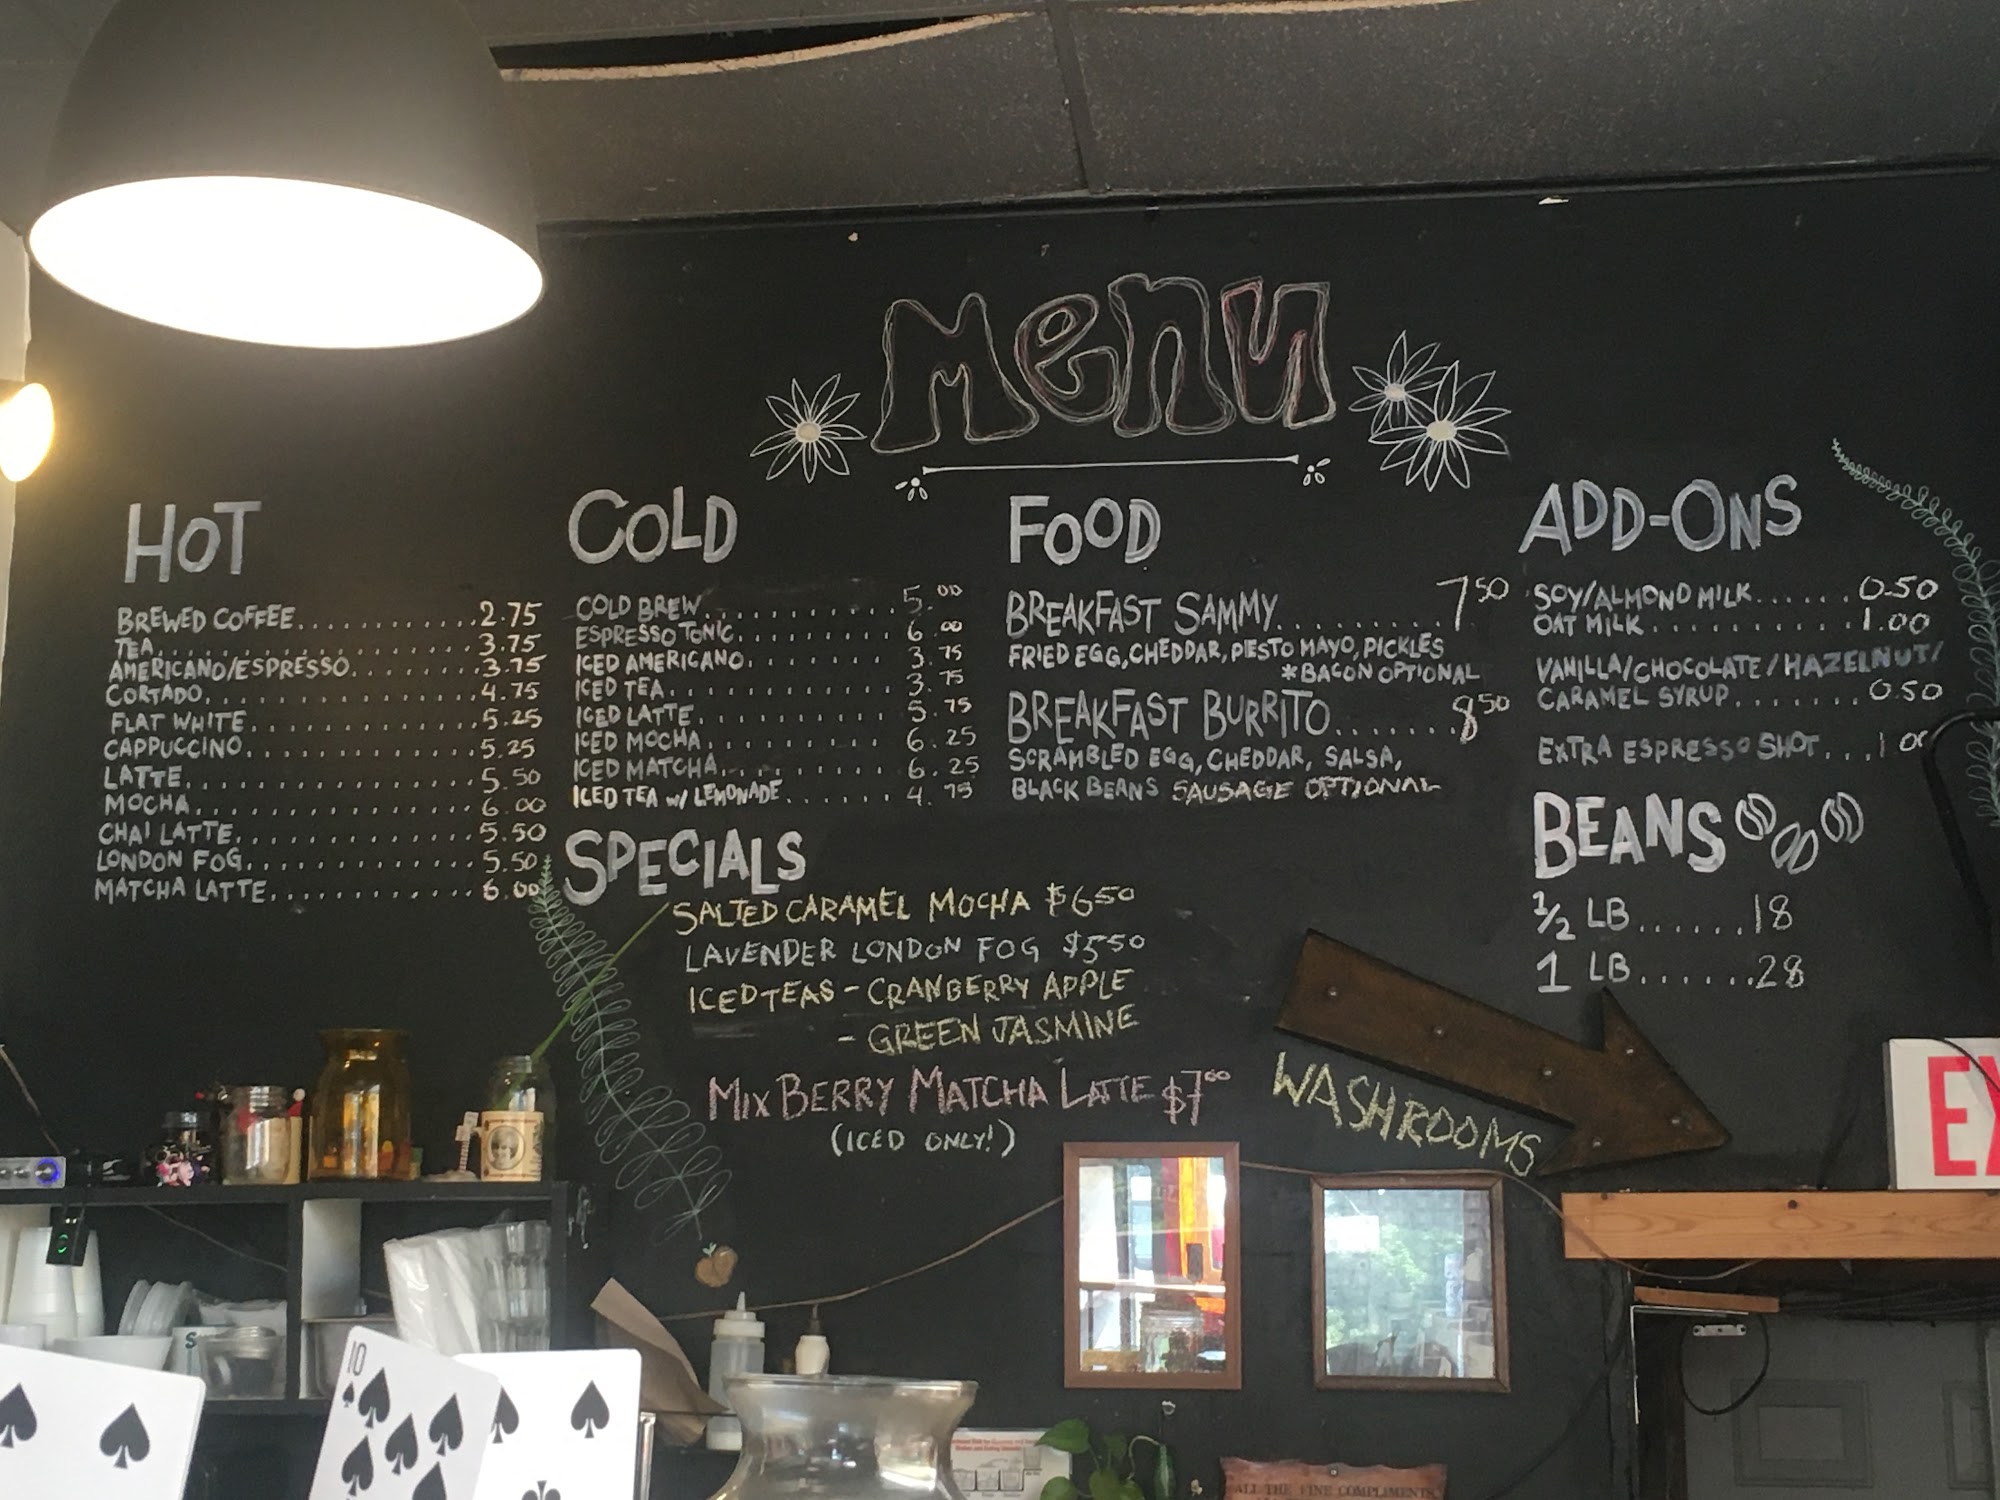 Menu
HOT
BREWED COFFEE............2.75
TEA....................3.75
AMERICANO/ESPRESSO........3.75
CORTADO..................4.75
FLAT WHITE...............5.25
CAPPUCCINO...............5.25
LATTE...................5.50
MOCHA...................6.00
CHAI LATTE...............5.50
LONDON FOG...............5.50
MATCHA LATTE.............6.00
COLD
COLD BREW.............5.00
ESPRESSO TONIC.........6.00
ICED AMERICANO.........3.75
ICED TEA..............3.75
ICED LATTE............5.75
ICED MOCHA............6.25
ICED MATCHA...........6.25
ICED TEA W/ LEMONADE......4.75
SPECIALS
SALTED CARAMEL MOCHA $6.50
LAVENDER LONDON FOG $5.50
ICED TEAS - CRANBERRY APPLE
- GREEN JASMINE
MIXBERRY MATCHA LATTE $7.00
(ICED ONLY!)
FOOD
BREAKFAST SAMMY..........7.50
FRIED EGG, CHEDDAR, PIESTO MAYO, PICKLES
*BACON OPTIONAL
BREAKFAST BURRITO.......8.50
SCRAMBLED EGG, CHEDDAR, SALSA,
BLACK BEANS SAUSAGE OPTIONAL
ADD-ONS
SOY/ALMOND MILK......0.50
OAT MILK...........1.00
VANILLA/CHOCOLATE/HAZELNUT/
CARAMEL SYRUP.......0.50
EXTRA ESPRESSO SHOT...1.00
BEANS
1/2 LB......18
1 LB......28
WASHROOMS
EX
10
ALL THE FINE COMPLIMENTS